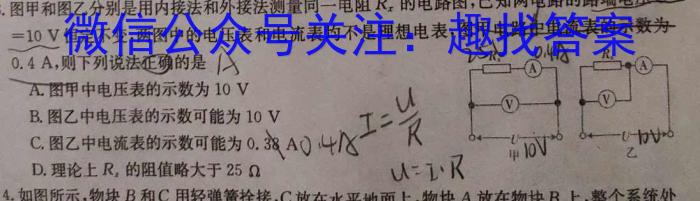 图甲和图乙分别是用内接法和外接法测量同一电阻 Rₓ 的电路图,已知两电路的路端电压
=10 V 不变,两图中的电压表和电流表均不是理想电表,图甲电路中电流表的示数为
微信公众号关注:趣找答案
0.4 A,则下列说法正确的是 A
A. 图甲中电压表的示数为 10 V
B. 图乙中电压表的示数可能为 10 V
C. 图乙中电流表的示数可能为 0.38 A 0.4A
D. 理论上 Rₓ 的阻值略大于 25 Ω
I=U/R
U=I·R
0.4A
Rₓ
A
V
U
甲 10V
A
V
U
10V
乙
4. 如图所示,物块 B 和 C 用轻弹簧拴接,C 放在水平地面上,物块 A 放在物块 B 上,整个系统处